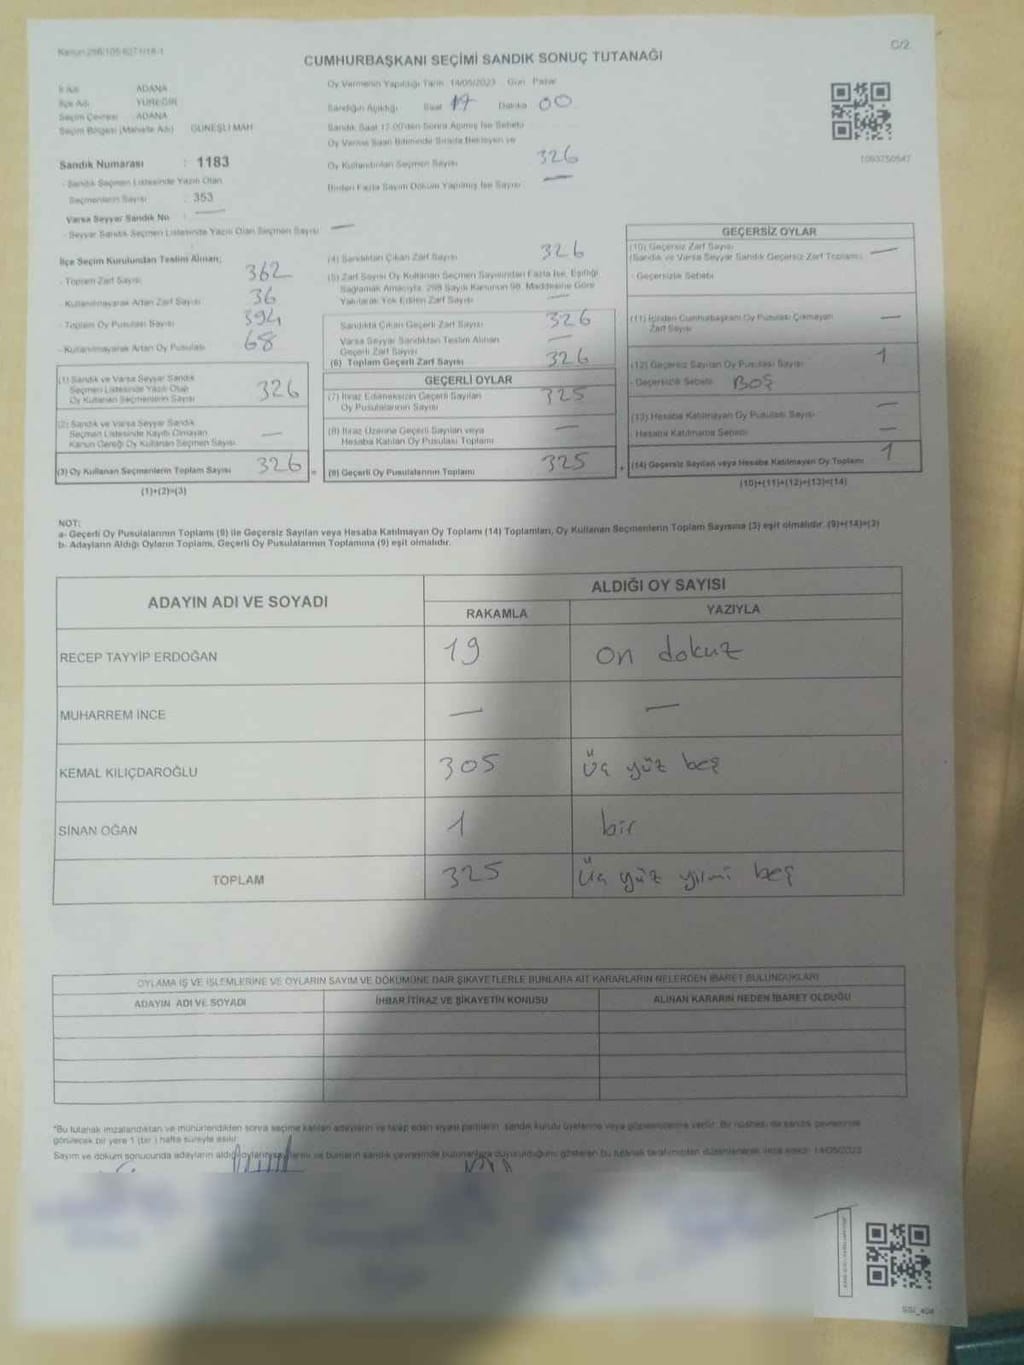 Kanun 298/105-6271/18-1
C/2
CUMHURBAŞKANI SEÇİMİ SANDIK SONUÇ TUTANAĞI
İl Adı ADANA
İlçe Adı YÜREĞİR
Seçim Çevresi ADANA
Seçim Bölgesi (Mahalle Adı) GÜNEŞLİ MAH
Sandık Numarası : 1183
- Sandık Seçmen Listesinde Yazılı Olan
Seçmenlerin Sayısı : 353
Varsa Seyyar Sandık No : —
- Seyyar Sandık Seçmen Listesinde Yazılı Olan Seçmen Sayısı —
Oy Vermenin Yapıldığı Tarih 14/05/2023 Gün Pazar
Sandığın Açıldığı Saat 17 Dakika 00
Sandık Saat 17.00'den Sonra Açılmış İse Sebebi
Oy Verme Saati Bitiminde Sırada Bekleyen ve
Oy Kullandırılan Seçmen Sayısı 326
Birden Fazla Sayım Döküm Yapılmış İse Sayısı —
İlçe Seçim Kurulundan Teslim Alınan;
- Toplam Zarf Sayısı 362
- Kullanılmayarak Artan Zarf Sayısı 36
- Toplam Oy Pusulası Sayısı 394
- Kullanılmayarak Artan Oy Pusulası 68
(1) Sandık ve Varsa Seyyar Sandık
Seçmen Listesinde Yazılı Olup
Oy Kullanan Seçmenlerin Sayısı 326
(2) Sandık ve Varsa Seyyar Sandık
Seçmen Listesinde Kayıtlı Olmayan
Kanun Gereği Oy Kullanan Seçmen Sayısı —
(3) Oy Kullanan Seçmenlerin Toplam Sayısı 326 =
(1)+(2)=(3)
(4) Sandıktan Çıkan Zarf Sayısı 326
(5) Zarf Sayısı Oy Kullanan Seçmen Sayısından Fazla İse, Eşitliği
Sağlamak Amacıyla, 298 Sayılı Kanunun 98. Maddesine Göre
Yakılarak Yok Edilen Zarf Sayısı —
Sandıkta Çıkan Geçerli Zarf Sayısı 326
Varsa Seyyar Sandıktan Teslim Alınan
Geçerli Zarf Sayısı —
(6) Toplam Geçerli Zarf Sayısı 326
GEÇERLİ OYLAR
(7) İtiraz Edilmeksizin Geçerli Sayılan
Oy Pusulalarının Sayısı 325
(8) İtiraz Üzerine Geçerli Sayılan veya
Hesaba Katılan Oy Pusulası Toplamı —
(9) Geçerli Oy Pusulalarının Toplamı 325 +
1093750547
GEÇERSİZ OYLAR
(10) Geçersiz Zarf Sayısı
(Sandık ve Varsa Seyyar Sandık Geçersiz Zarf Toplamı) —
- Geçersizlik Sebebi
(11) İçinden Cumhurbaşkanı Oy Pusulası Çıkmayan
Zarf Sayısı —
(12) Geçersiz Sayılan Oy Pusulası Sayısı 1
- Geçersizlik Sebebi BOŞ
(13) Hesaba Katılmayan Oy Pusulası Sayısı —
- Hesaba Katılmama Sebebi —
(14) Geçersiz Sayılan veya Hesaba Katılmayan Oy Toplamı 1
(10)+(11)+(12)+(13)=(14)
NOT:
a- Geçerli Oy Pusulalarının Toplamı (9) ile Geçersiz Sayılan veya Hesaba Katılmayan Oy Toplamı (14) Toplamları, Oy Kullanan Seçmenlerin Toplam Sayısına (3) eşit olmalıdır. (9)+(14)=(3)
b- Adayların Aldığı Oyların Toplamı, Geçerli Oy Pusulalarının Toplamına (9) eşit olmalıdır.
ADAYIN ADI VE SOYADI ALDIĞI OY SAYISI
RAKAMLA YAZIYLA
RECEP TAYYİP ERDOĞAN 19 on dokuz
MUHARREM İNCE — —
KEMAL KILIÇDAROĞLU 305 üç yüz beş
SİNAN OĞAN 1 bir
TOPLAM 325 üç yüz yirmi beş
OYLAMA İŞ VE İŞLEMLERİNE VE OYLARIN SAYIM VE DÖKÜMÜNE DAİR ŞİKAYETLERLE BUNLARA AİT KARARLARIN NELERDEN İBARET BULUNDUKLARI
ADAYIN ADI VE SOYADI İHBAR İTİRAZ VE ŞİKAYETİN KONUSU ALINAN KARARIN NEDEN İBARET OLDUĞU
*Bu tutanak imzalandıktan ve mühürlendikten sonra seçime katılan adayların ve talep eden siyasi partilerin, sandık kurulu üyelerine veya gözlemcilerine verilir. Bir nüshası da sandık çevresinde
görülecek bir yere 1 (bir) hafta süreyle asılır.
Sayım ve döküm sonucunda adayların aldığı oyların sayılarını ve bunların sandık çevresinde bulunanlara duyurulduğunu gösteren bu tutanak tarafımızdan düzenlenerek imza edildi. 14/05/2023
SSI_404